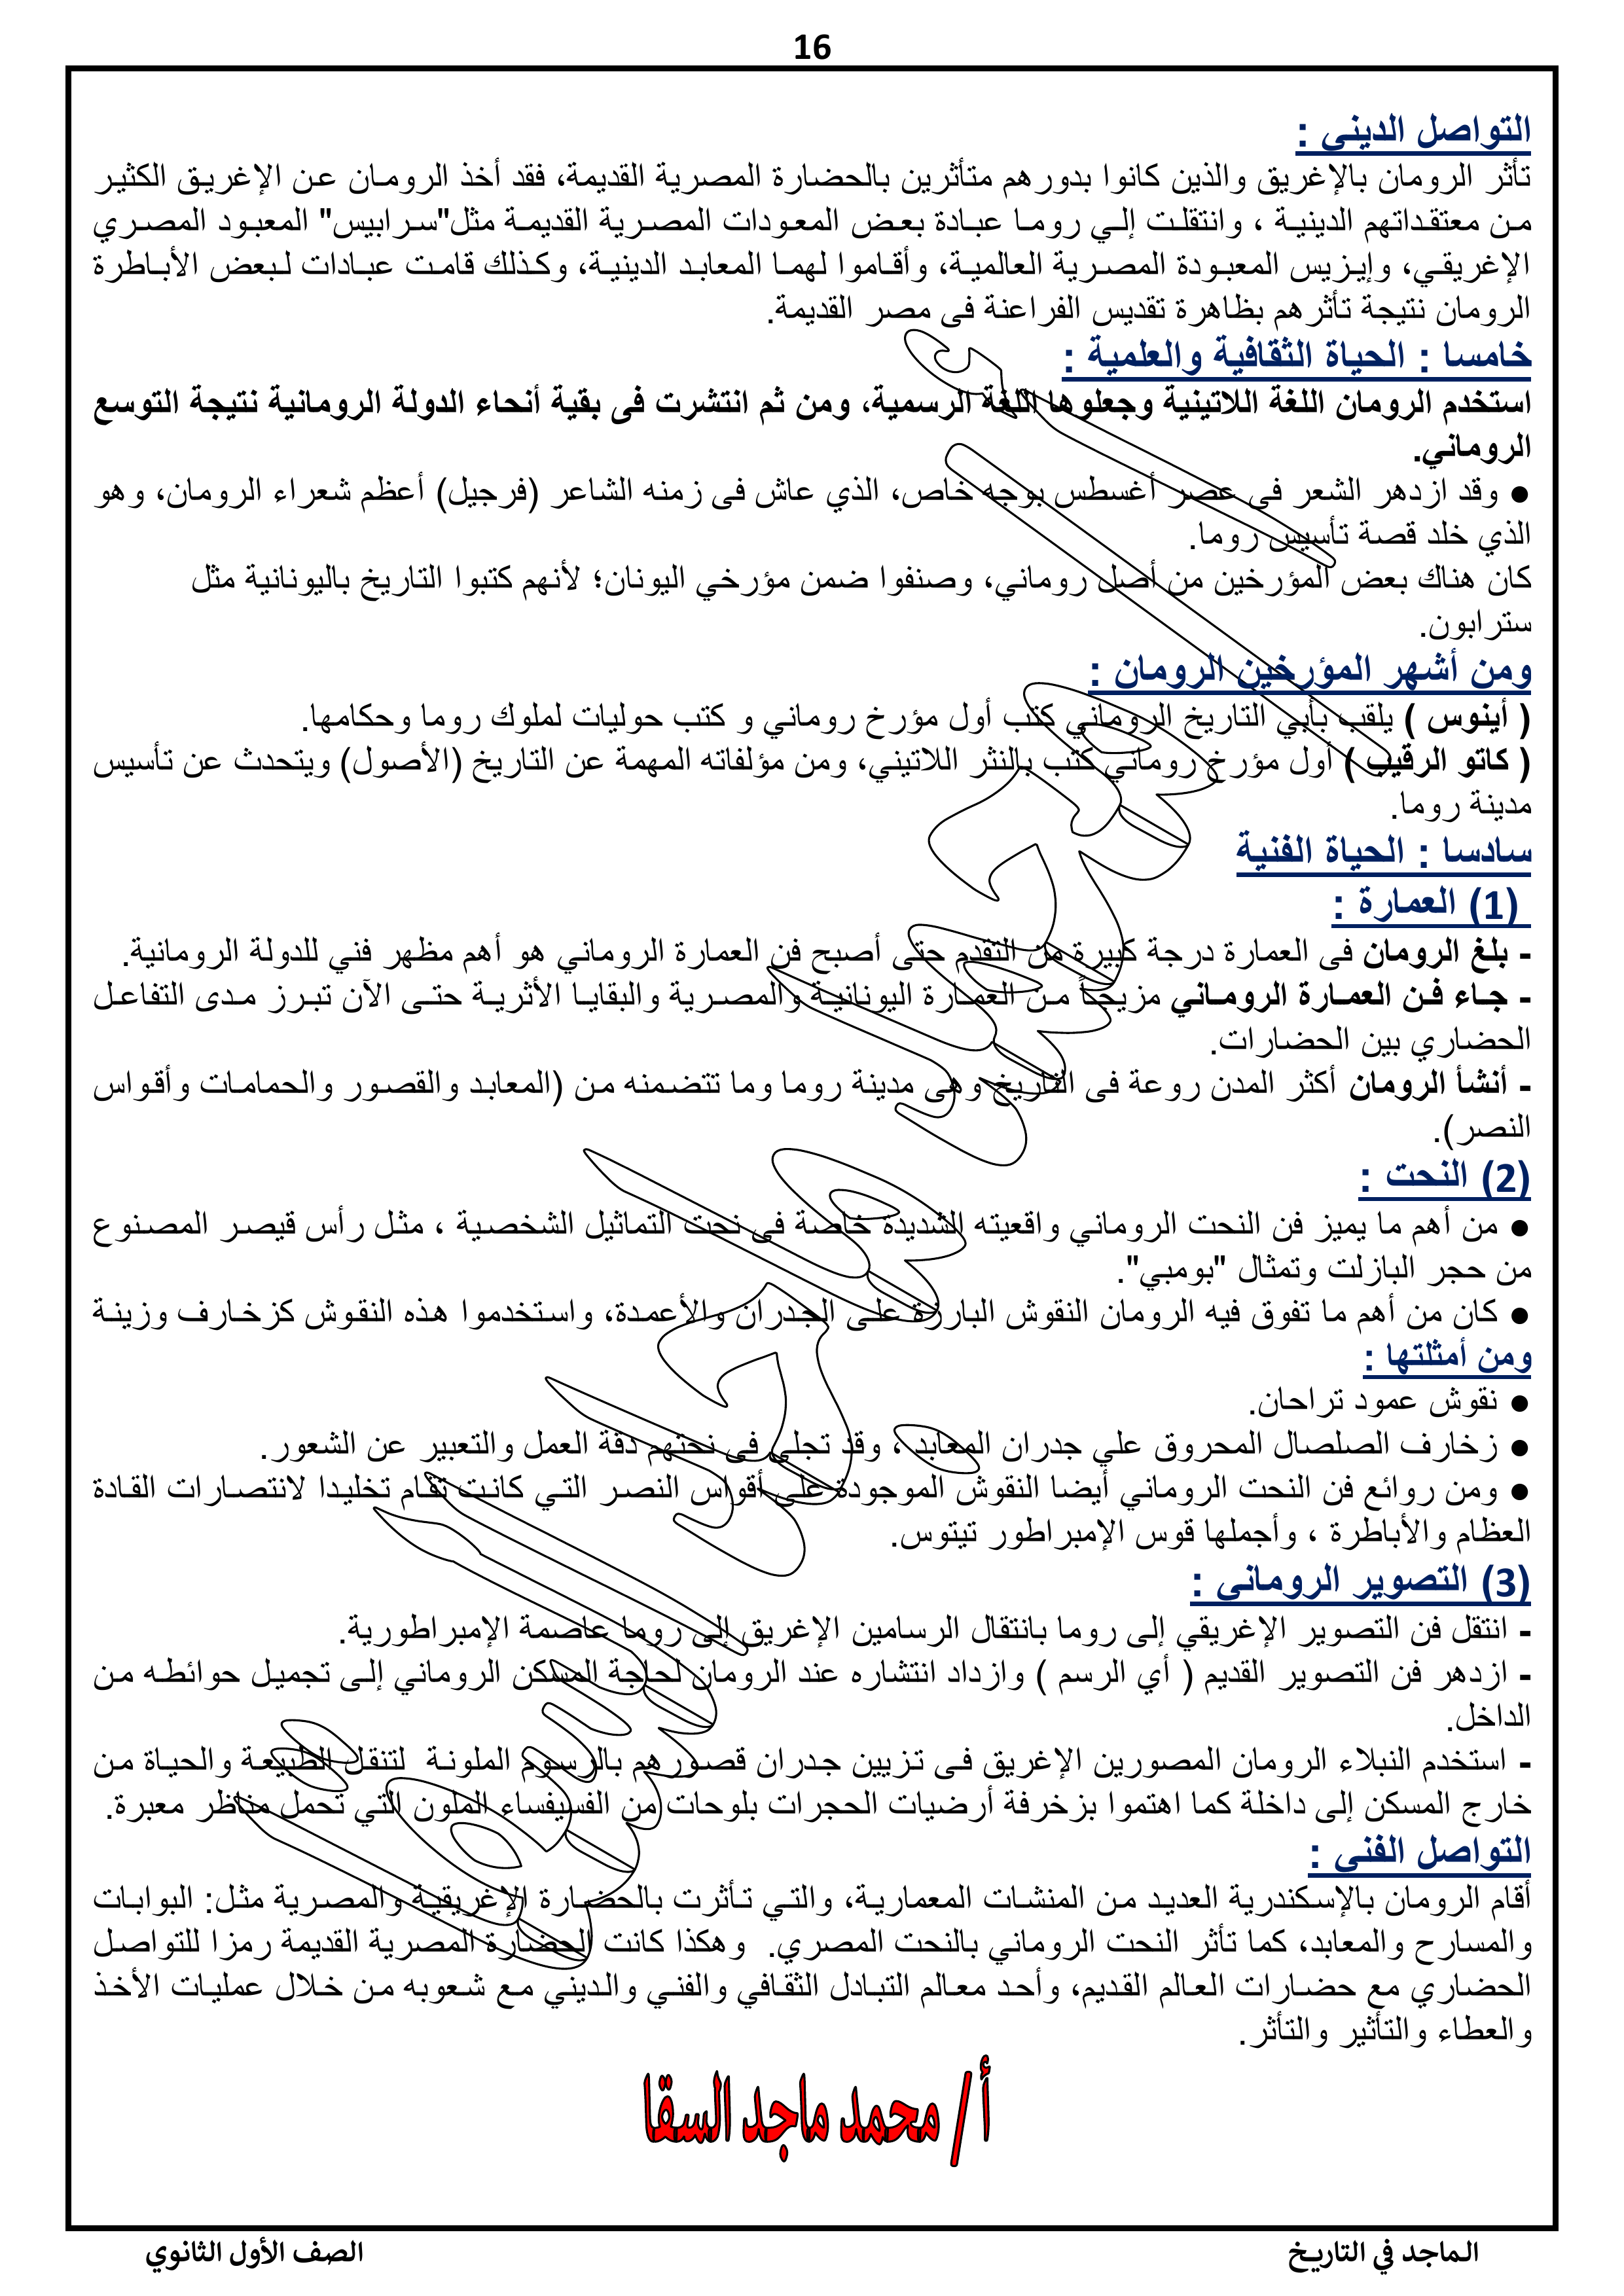 16
التواصل الدينى :
تأثر الرومان بالإغريق والذين كانوا بدورهم متأثرين بالحضارة المصرية القديمة، فقد أخذ الرومان عن الإغريق الكثير
من معتقداتهم الدينية ، وانتقلت إلي روما عبادة بعض المعودات المصرية القديمة مثل"سرابيس" المعبود المصري
الإغريقي، وإيزيس المعبودة المصرية العالمية، وأقاموا لهما المعابد الدينية، وكذلك قامت عبادات لبعض الأباطرة
الرومان نتيجة تأثرهم بظاهرة تقديس الفراعنة فى مصر القديمة.
خامسا : الحياة الثقافية والعلمية :
استخدم الرومان اللغة اللاتينية وجعلوها اللغة الرسمية، ومن ثم انتشرت فى بقية أنحاء الدولة الرومانية نتيجة التوسع
الروماني.
● وقد ازدهر الشعر فى عصر أغسطس بوجه خاص، الذي عاش فى زمنه الشاعر (فرجيل) أعظم شعراء الرومان، وهو
الذي خلد قصة تأسيس روما.
كان هناك بعض المؤرخين من أصل روماني، وصنفوا ضمن مؤرخي اليونان؛ لأنهم كتبوا التاريخ باليونانية مثل
سترابون.
ومن أشهر المؤرخين الرومان :
( أينوس ) يلقب بأبي التاريخ الروماني كتب أول مؤرخ روماني و كتب حوليات لملوك روما وحكامها.
( كاتو الرقيب ) أول مؤرخ روماني كتب بالنثر اللاتيني، ومن مؤلفاته المهمة عن التاريخ (الأصول) ويتحدث عن تأسيس
مدينة روما.
سادسا : الحياة الفنية
(1) العمارة :
- بلغ الرومان فى العمارة درجة كبيرة من التقدم حتى أصبح فن العمارة الروماني هو أهم مظهر فني للدولة الرومانية.
- جاء فن العمارة الروماني مزيجاً من العمارة اليونانية والمصرية والبقايا الأثرية حتى الآن تبرز مدى التفاعل
الحضاري بين الحضارات.
- أنشأ الرومان أكثر المدن روعة فى التاريخ وهى مدينة روما وما تتضمنه من (المعابد والقصور والحمامات وأقواس
النصر).
(2) النحت :
● من أهم ما يميز فن النحت الروماني واقعيته الشديدة خاصة فى نحت التماثيل الشخصية ، مثل رأس قيصر المصنوع
من حجر البازلت وتمثال "بومبي".
● كان من أهم ما تفوق فيه الرومان النقوش البارزة على الجدران والأعمدة، واستخدموا هذه النقوش كزخارف وزينة
ومن أمثلتها :
● نقوش عمود تراحان.
● زخارف الصلصال المحروق علي جدران المعابد ، وقد تجلى فى نحتهم دقة العمل والتعبير عن الشعور.
● ومن روائع فن النحت الروماني أيضا النقوش الموجودة على أقواس النصر التي كانت تقام تخليدا لانتصارات القادة
العظام والأباطرة ، وأجملها قوس الإمبراطور تيتوس.
(3) التصوير الرومانى :
- انتقل فن التصوير الإغريقي إلى روما بانتقال الرسامين الإغريق إلى روما عاصمة الإمبراطورية.
- ازدهر فن التصوير القديم ( أي الرسم ) وازداد انتشاره عند الرومان لحاجة المسكن الروماني إلى تجميل حوائطه من
الداخل.
- استخدم النبلاء الرومان المصورين الإغريق فى تزيين جدران قصورهم بالرسوم الملونة لتنقل الطبيعة والحياة من
خارج المسكن إلى داخلة كما اهتموا بزخرفة أرضيات الحجرات بلوحات من الفسيفساء الملون التي تحمل مناظر معبرة.
التواصل الفنى :
أقام الرومان بالإسكندرية العديد من المنشات المعمارية، والتي تأثرت بالحضارة الإغريقية والمصرية مثل: البوابات
والمسارح والمعابد، كما تأثر النحت الروماني بالنحت المصري. وهكذا كانت الحضارة المصرية القديمة رمزا للتواصل
الحضاري مع حضارات العالم القديم، وأحد معالم التبادل الثقافي والفني والديني مع شعوبه من خلال عمليات الأخذ
والعطاء والتأثير والتأثر.
أ / محمد ماجد السقا
الماجد في التاريخ
الصف الأول الثانوي